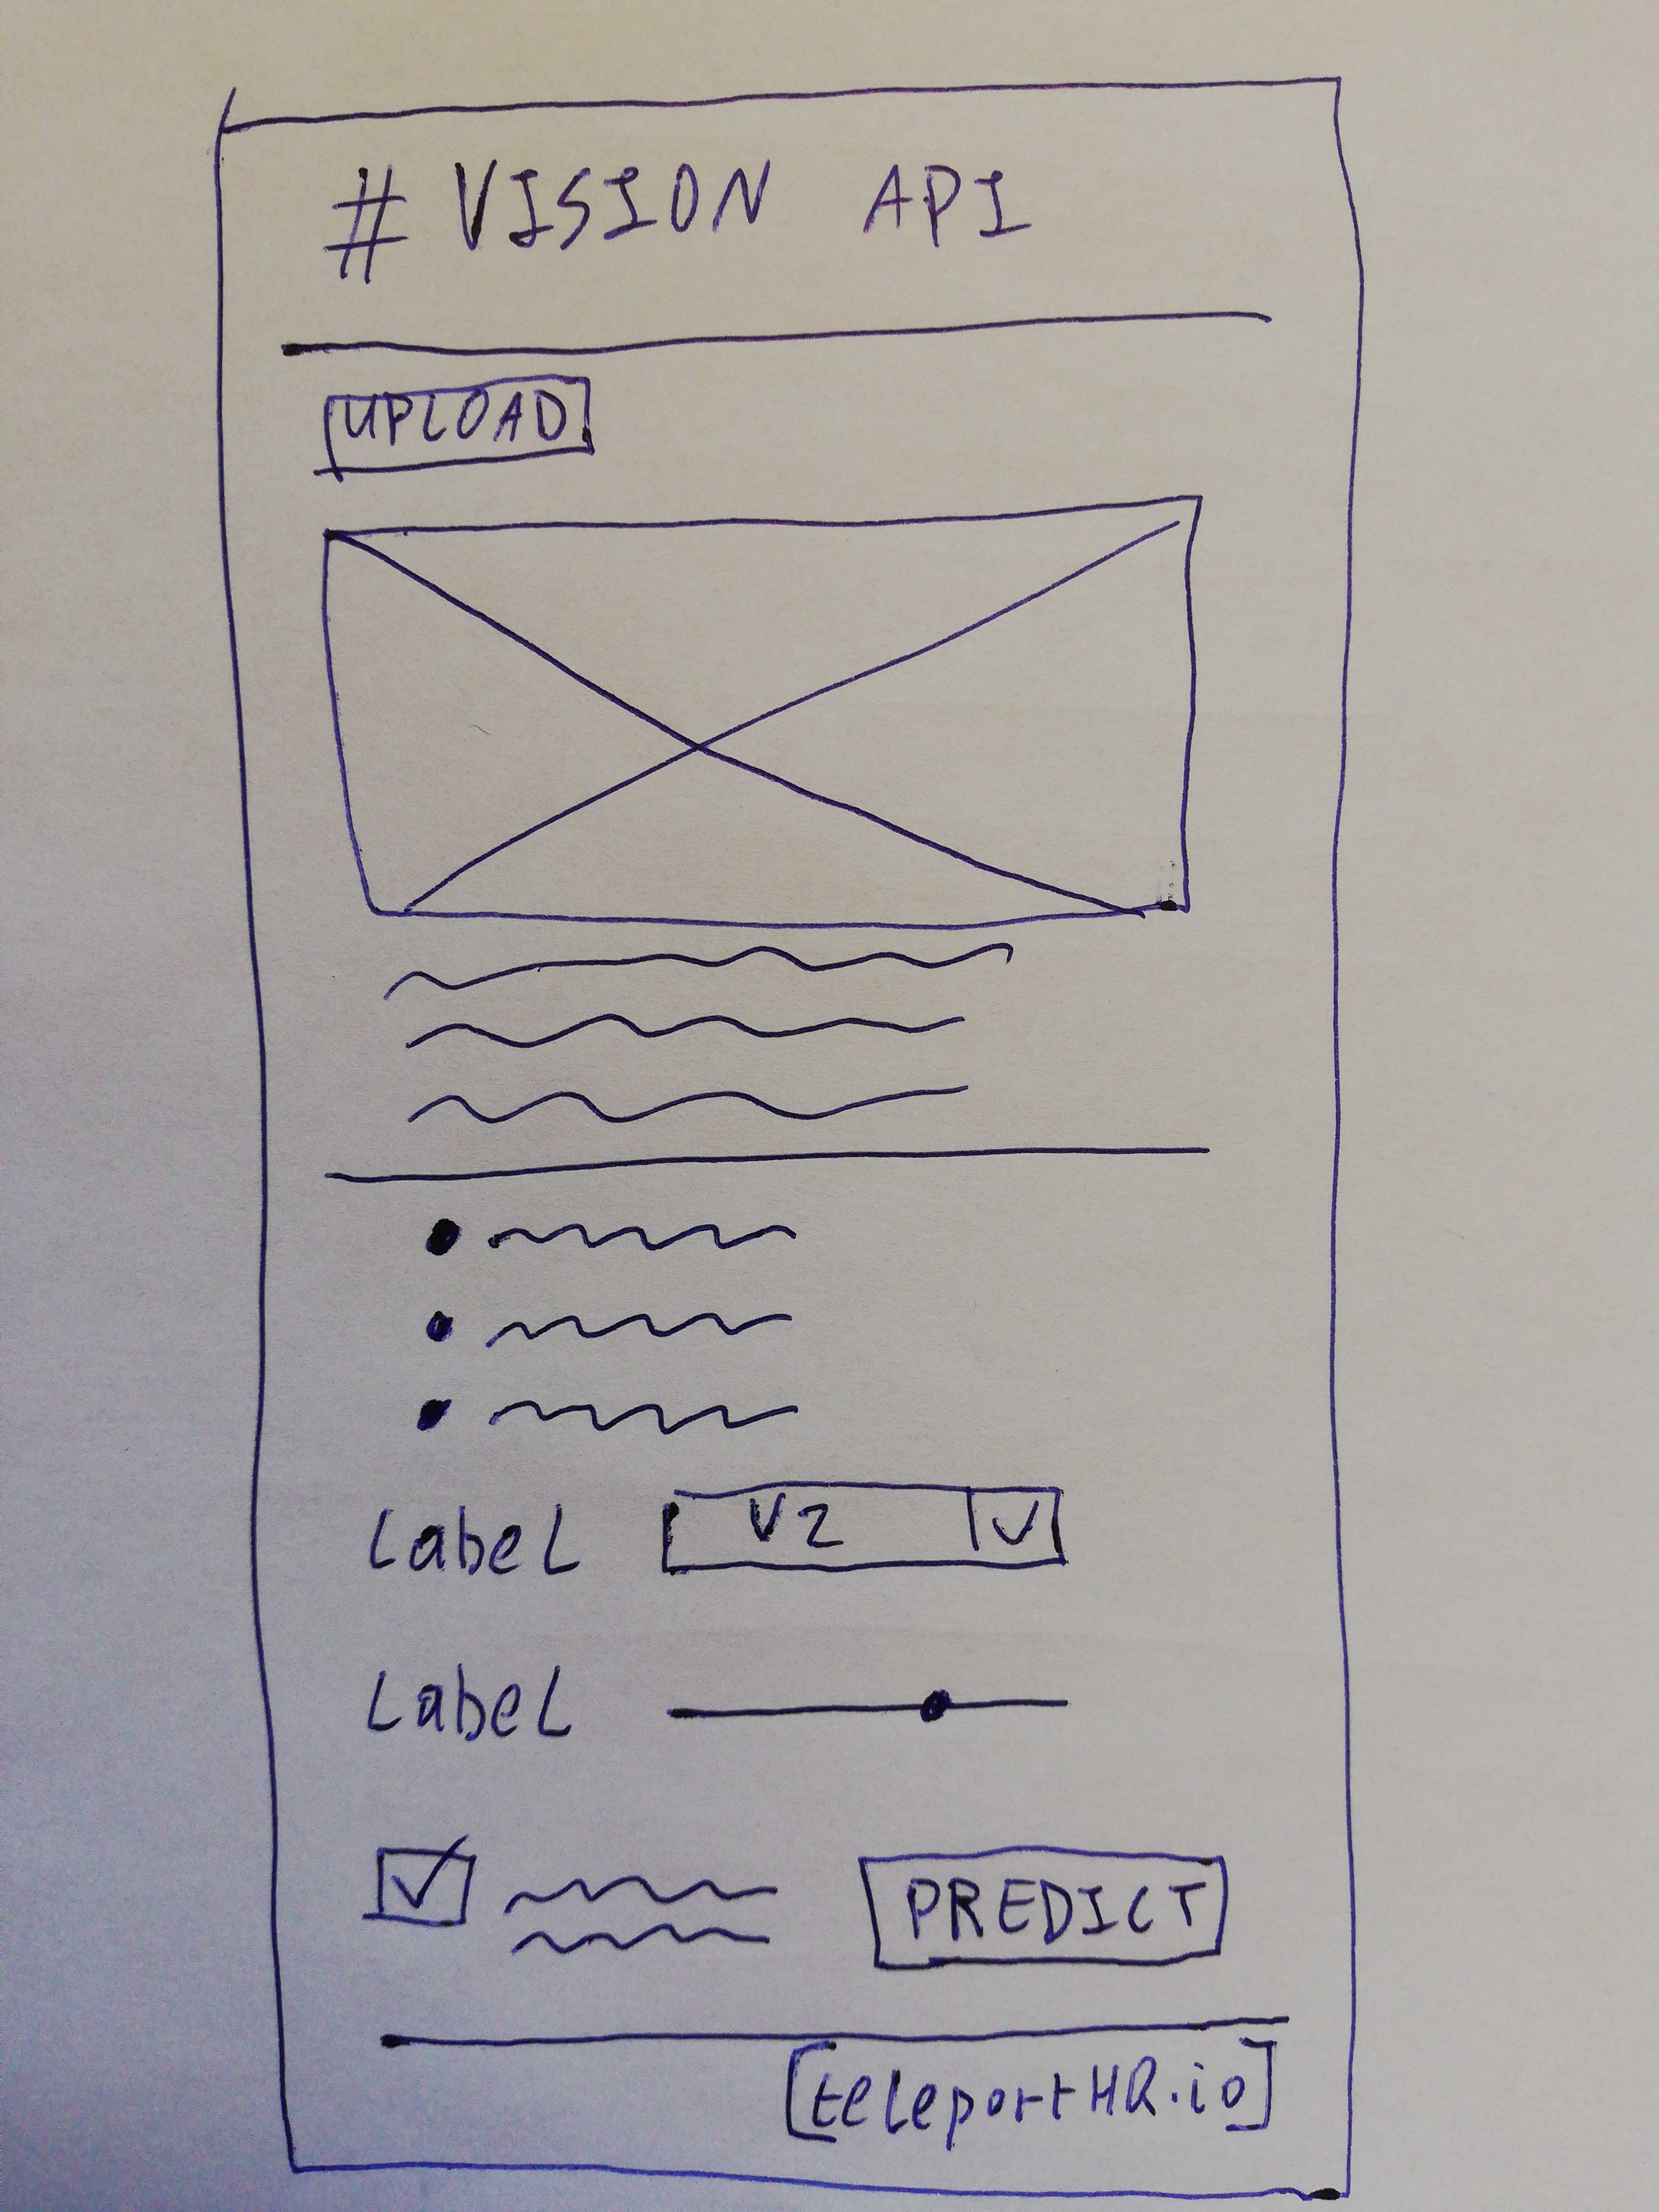 # VISION API
UPLOAD
Label V2
Label
PREDICT
[teleportHQ.io]